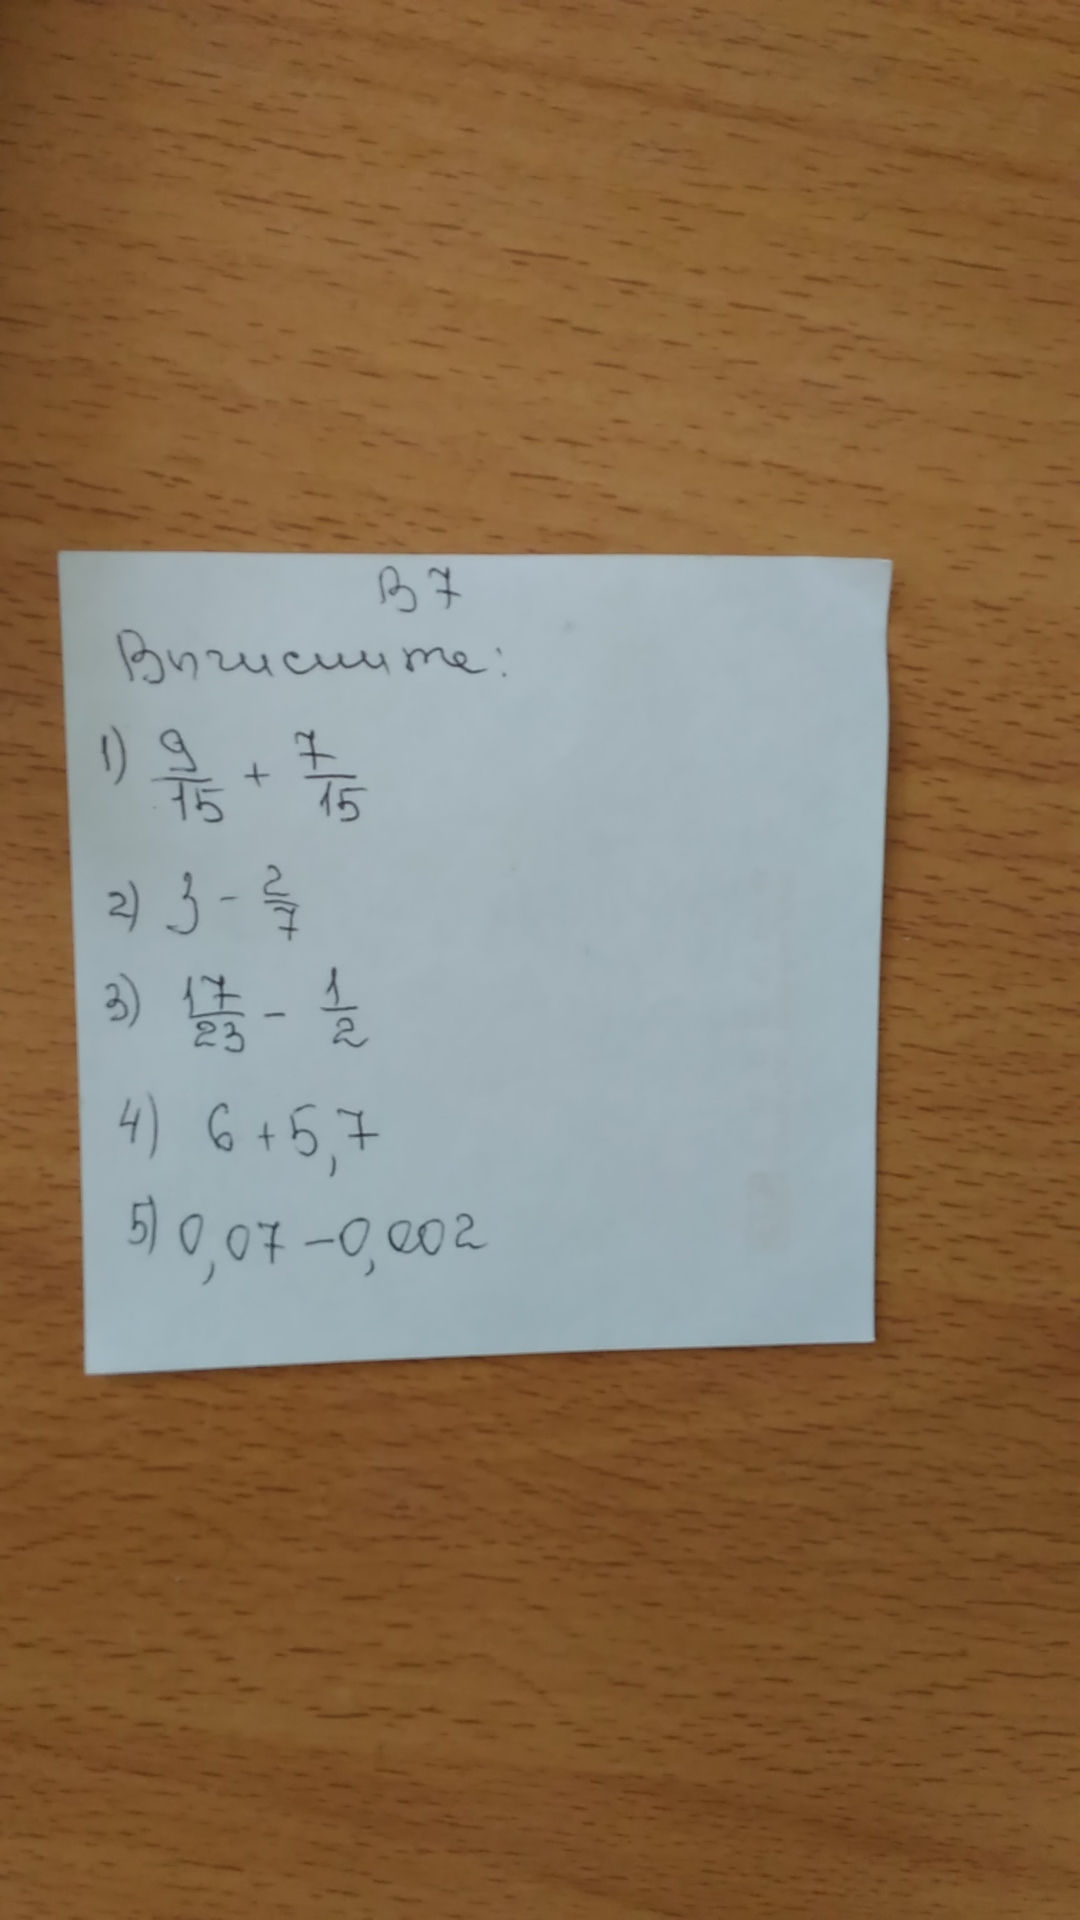 В7
Вычислите:
1) 9/15 + 7/15
2) 3 - 2/7
3) 17/23 - 1/2
4) 6 + 5,7
5) 0,07 - 0,002